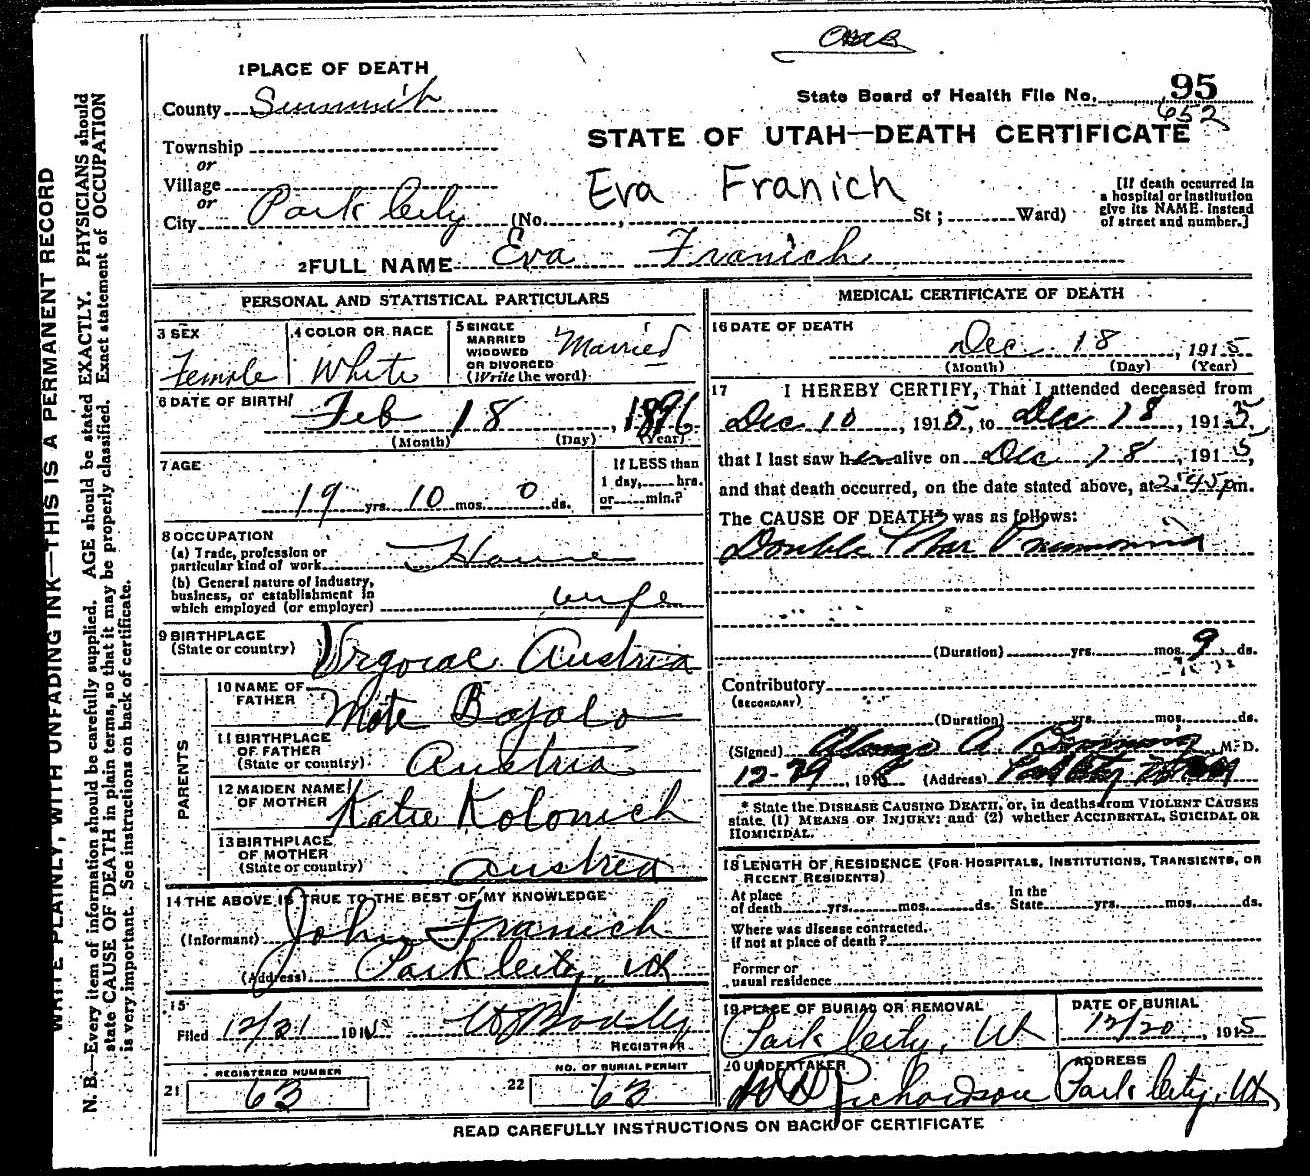 1 PLACE OF DEATH
County Summit
State Board of Health File No. 95
652
STATE OF UTAH—DEATH CERTIFICATE
Township
or
Village
or
City Park City (No. St; Ward)
Eva Franich
[If death occurred in
a hospital or institution
give its NAME. Instead
of street and number.]
2 FULL NAME Eva Franich
PERSONAL AND STATISTICAL PARTICULARS
3 SEX
Female
4 COLOR OR RACE
White
5 SINGLE
MARRIED
WIDOWED
OR DIVORCED
(Write the word)
Married
6 DATE OF BIRTH
Feb 18, 1896
(Month) (Day) (Year)
7 AGE
19 yrs. 10 mos. 0 ds.
If LESS than
1 day, hrs.
or min.?
8 OCCUPATION
(a) Trade, profession or
particular kind of work House
(b) General nature of industry,
business, or establishment in
which employed (or employer) wife
9 BIRTHPLACE
(State or country) Vrgorac Austria
PARENTS
10 NAME OF
FATHER Mate Bajalo
11 BIRTHPLACE
OF FATHER
(State or country) Austria
12 MAIDEN NAME
OF MOTHER Katie Kolonich
13 BIRTHPLACE
OF MOTHER
(State or country) Austria
14 THE ABOVE IS TRUE TO THE BEST OF MY KNOWLEDGE
(Informant) John Franich
(Address) Park City, Ut
15
Filed 12/21 191
REGISTRAR
REGISTERED NUMBER
21 63
NO. OF BURIAL PERMIT
22 63
MEDICAL CERTIFICATE OF DEATH
16 DATE OF DEATH
Dec 18, 1915
(Month) (Day) (Year)
17 I HEREBY CERTIFY, That I attended deceased from
Dec 10, 1915, to Dec 18, 1915,
that I last saw her alive on Dec 18, 1915,
and that death occurred, on the date stated above, at 2:45 pm.
The CAUSE OF DEATH* was as follows:
Double Pneumonia
(Duration) yrs. mos. 9 ds.
Contributory
(SECONDARY)
(Duration) yrs. mos. ds.
(Signed) M. D.
12-29, 191 (Address) Park City
* State the DISEASE CAUSING DEATH, or, in deaths from VIOLENT CAUSES
state (1) MEANS OF INJURY; and (2) whether ACCIDENTAL, SUICIDAL OR
HOMICIDAL.
18 LENGTH OF RESIDENCE (FOR HOSPITALS, INSTITUTIONS, TRANSIENTS, OR
RECENT RESIDENTS)
At place
of death yrs. mos. ds.
In the
State yrs. mos. ds.
Where was disease contracted,
if not at place of death?
Former or
usual residence
19 PLACE OF BURIAL OR REMOVAL
Park City, Ut
DATE OF BURIAL
12/20, 1915
20 UNDERTAKER
Richardson
ADDRESS
Park City, Ut
READ CAREFULLY INSTRUCTIONS ON BACK OF CERTIFICATE
WRITE PLAINLY, WITH UNFADING INK—THIS IS A PERMANENT RECORD
N. B.—Every item of information should be carefully supplied. AGE should be stated EXACTLY. PHYSICIANS should
state CAUSE OF DEATH in plain terms, so that it may be properly classified. Exact statement of OCCUPATION
is very important. See instructions on back of certificate.